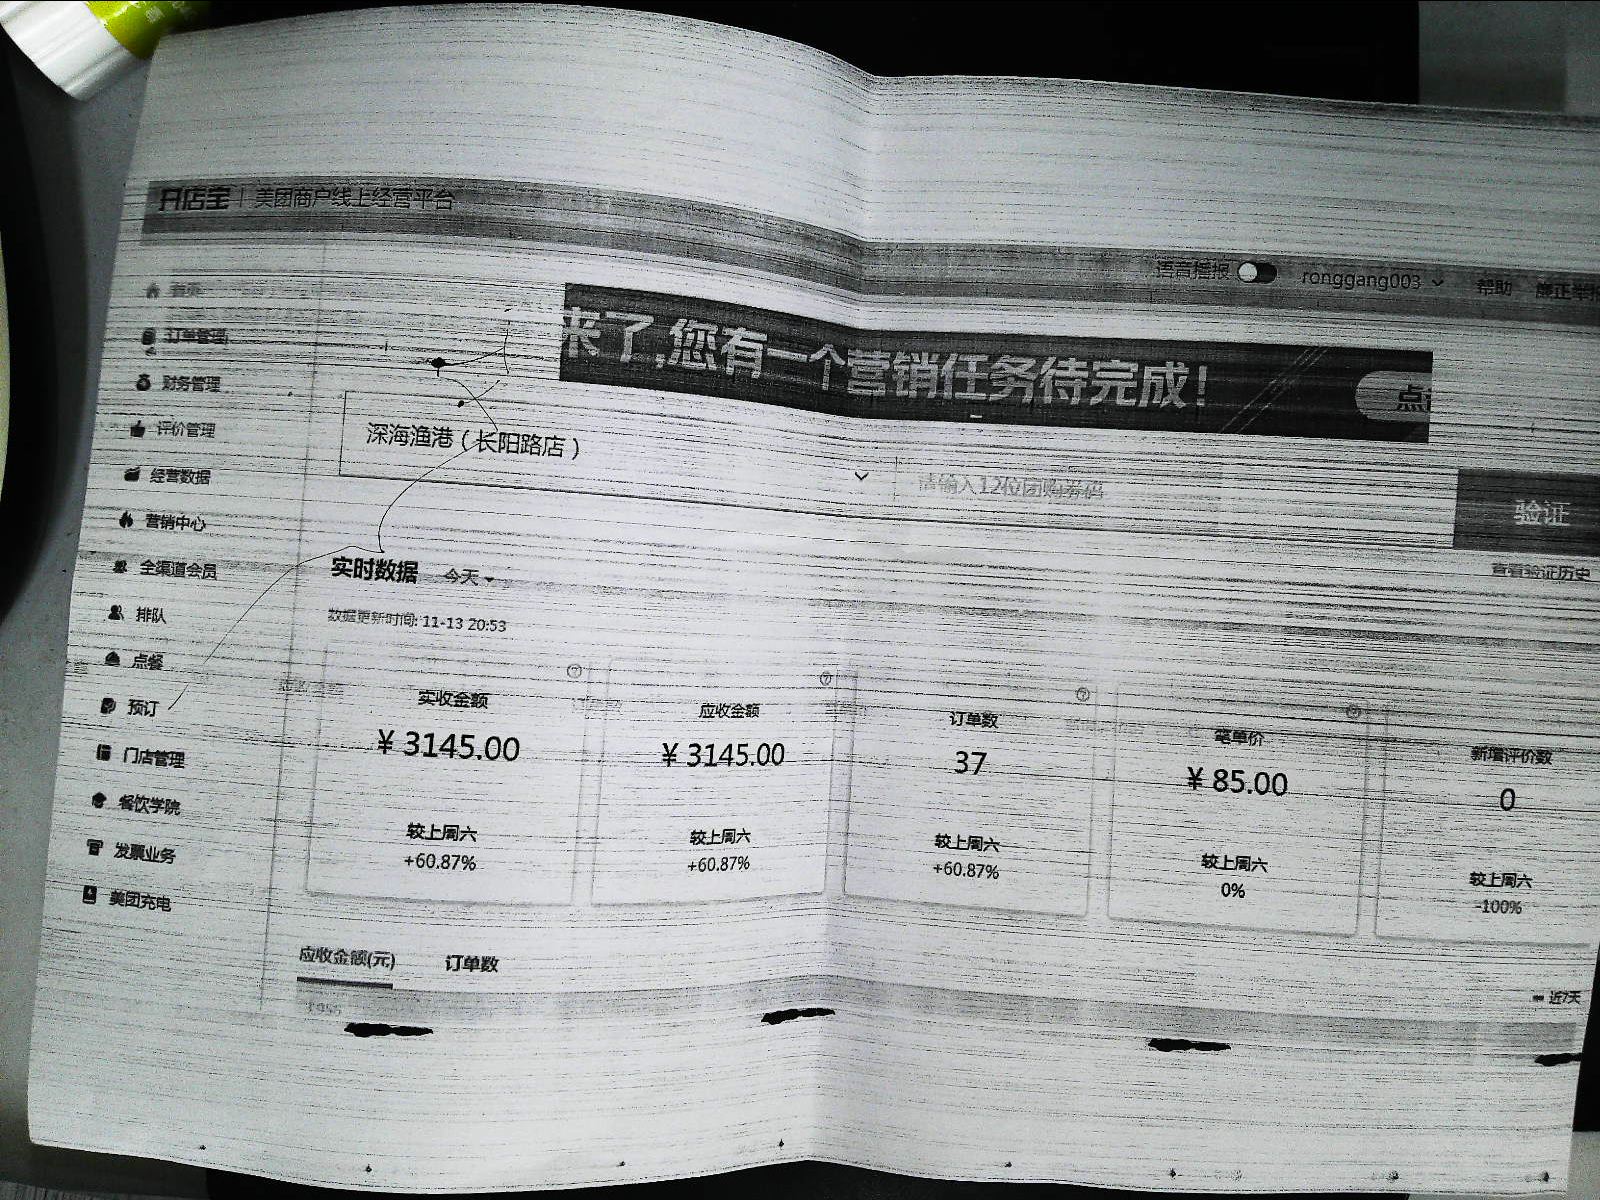 开店宝 | 美团商户线上经营平台
语音播报 ronggang003 帮助 廉正举报
首页
订单管理
财务管理
评价管理
经营数据
营销中心
全渠道会员
排队
点餐
预订
门店管理
餐饮学院
发票业务
美团充电
来了,您有一个营销任务待完成!
点
深海渔港（长阳路店）
请输入12位团购券码
验证
查看验证历史
实时数据 今天
数据更新时间: 11-13 20:53
实收金额
¥ 3145.00
较上周六
+60.87%
应收金额
¥ 3145.00
较上周六
+60.87%
订单数
37
较上周六
+60.87%
笔单价
¥ 85.00
较上周六
0%
新增评价数
0
较上周六
-100%
应收金额(元) 订单数
近7天